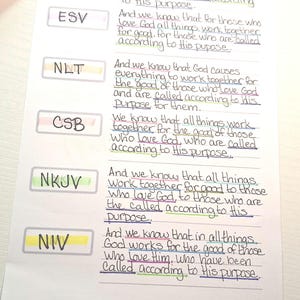 to His purpose.
ESV
And we know that for those who
love God all things work together
for good, for those who are called
according to His pupose.
NLT
And we know that God causes
everything to work together for
the good of those who love God
and are called according to His
purpose for them.
CSB
We know that all things work
together for the good of those
who love God, who are called
according to His purpose.
NKJV
And we know that all things
work together for good to those
who love God, to those who are
the called according to His
purpose.
NIV
And we know that in all things
God works for the good of those
who love Him, who have been
called according to His purpose.